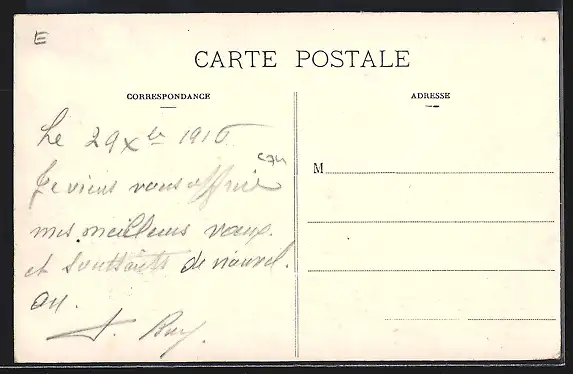 E
CARTE POSTALE
CORRESPONDANCE
ADRESSE
Le 29 Xbre 1916
C74
Je viens vous offrir
M
mes meilleurs vœux.
et souhaits de nouvel.
an.